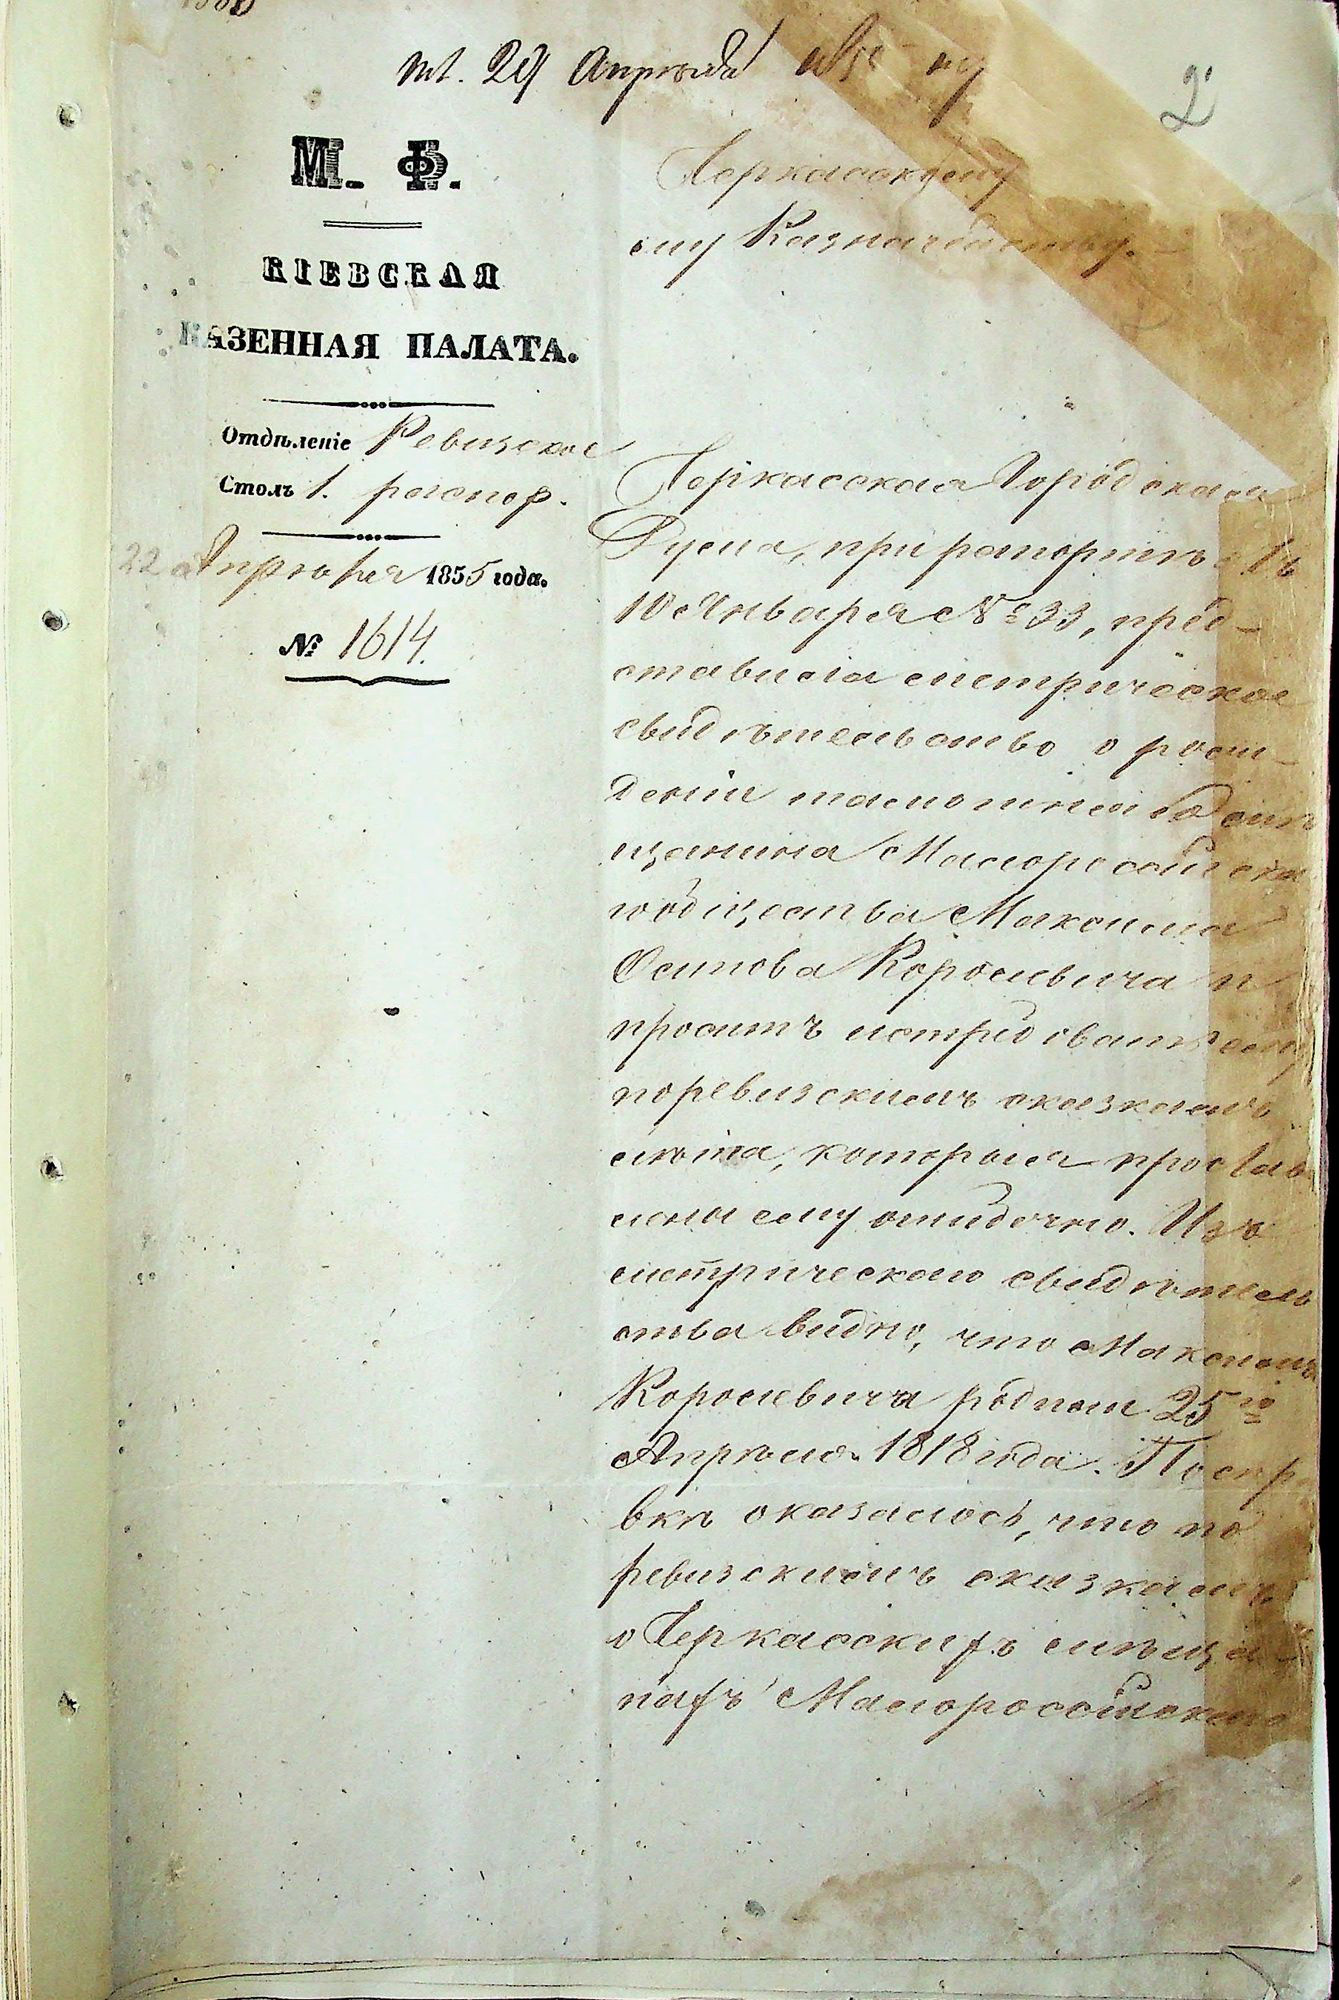 29 Апрѣля
2
М. Ф.
КІЕВСКАЯ
КАЗЕННАЯ ПАЛАТА.
Отдѣленіе Ревизское
Столъ 1. 
22 Апрѣля 1855 года.
№ 1614.
Черкасскому
му Казначейству.
Черкасская Городская
Дума, при рапортѣ
10 Января № 33, пред-
ставила метрическое
свидѣтельство о рож-
деніи тамошняго мѣ
щанина Малороссійска
го общества Максима
Осипова Королевича и
проситъ исправить ему
по ревизскимъ сказкамъ
лѣта, которыя простав
лены ему ошибочно. Изъ
метрическаго свидѣтель
ства видно, что Максимъ
Королевичъ родился 25го
Апрѣля 1818 года. По спра
вкѣ оказалось, что по
ревизскимъ сказкамъ
о Черкасскихъ мѣща-
нахъ Малороссійскаго